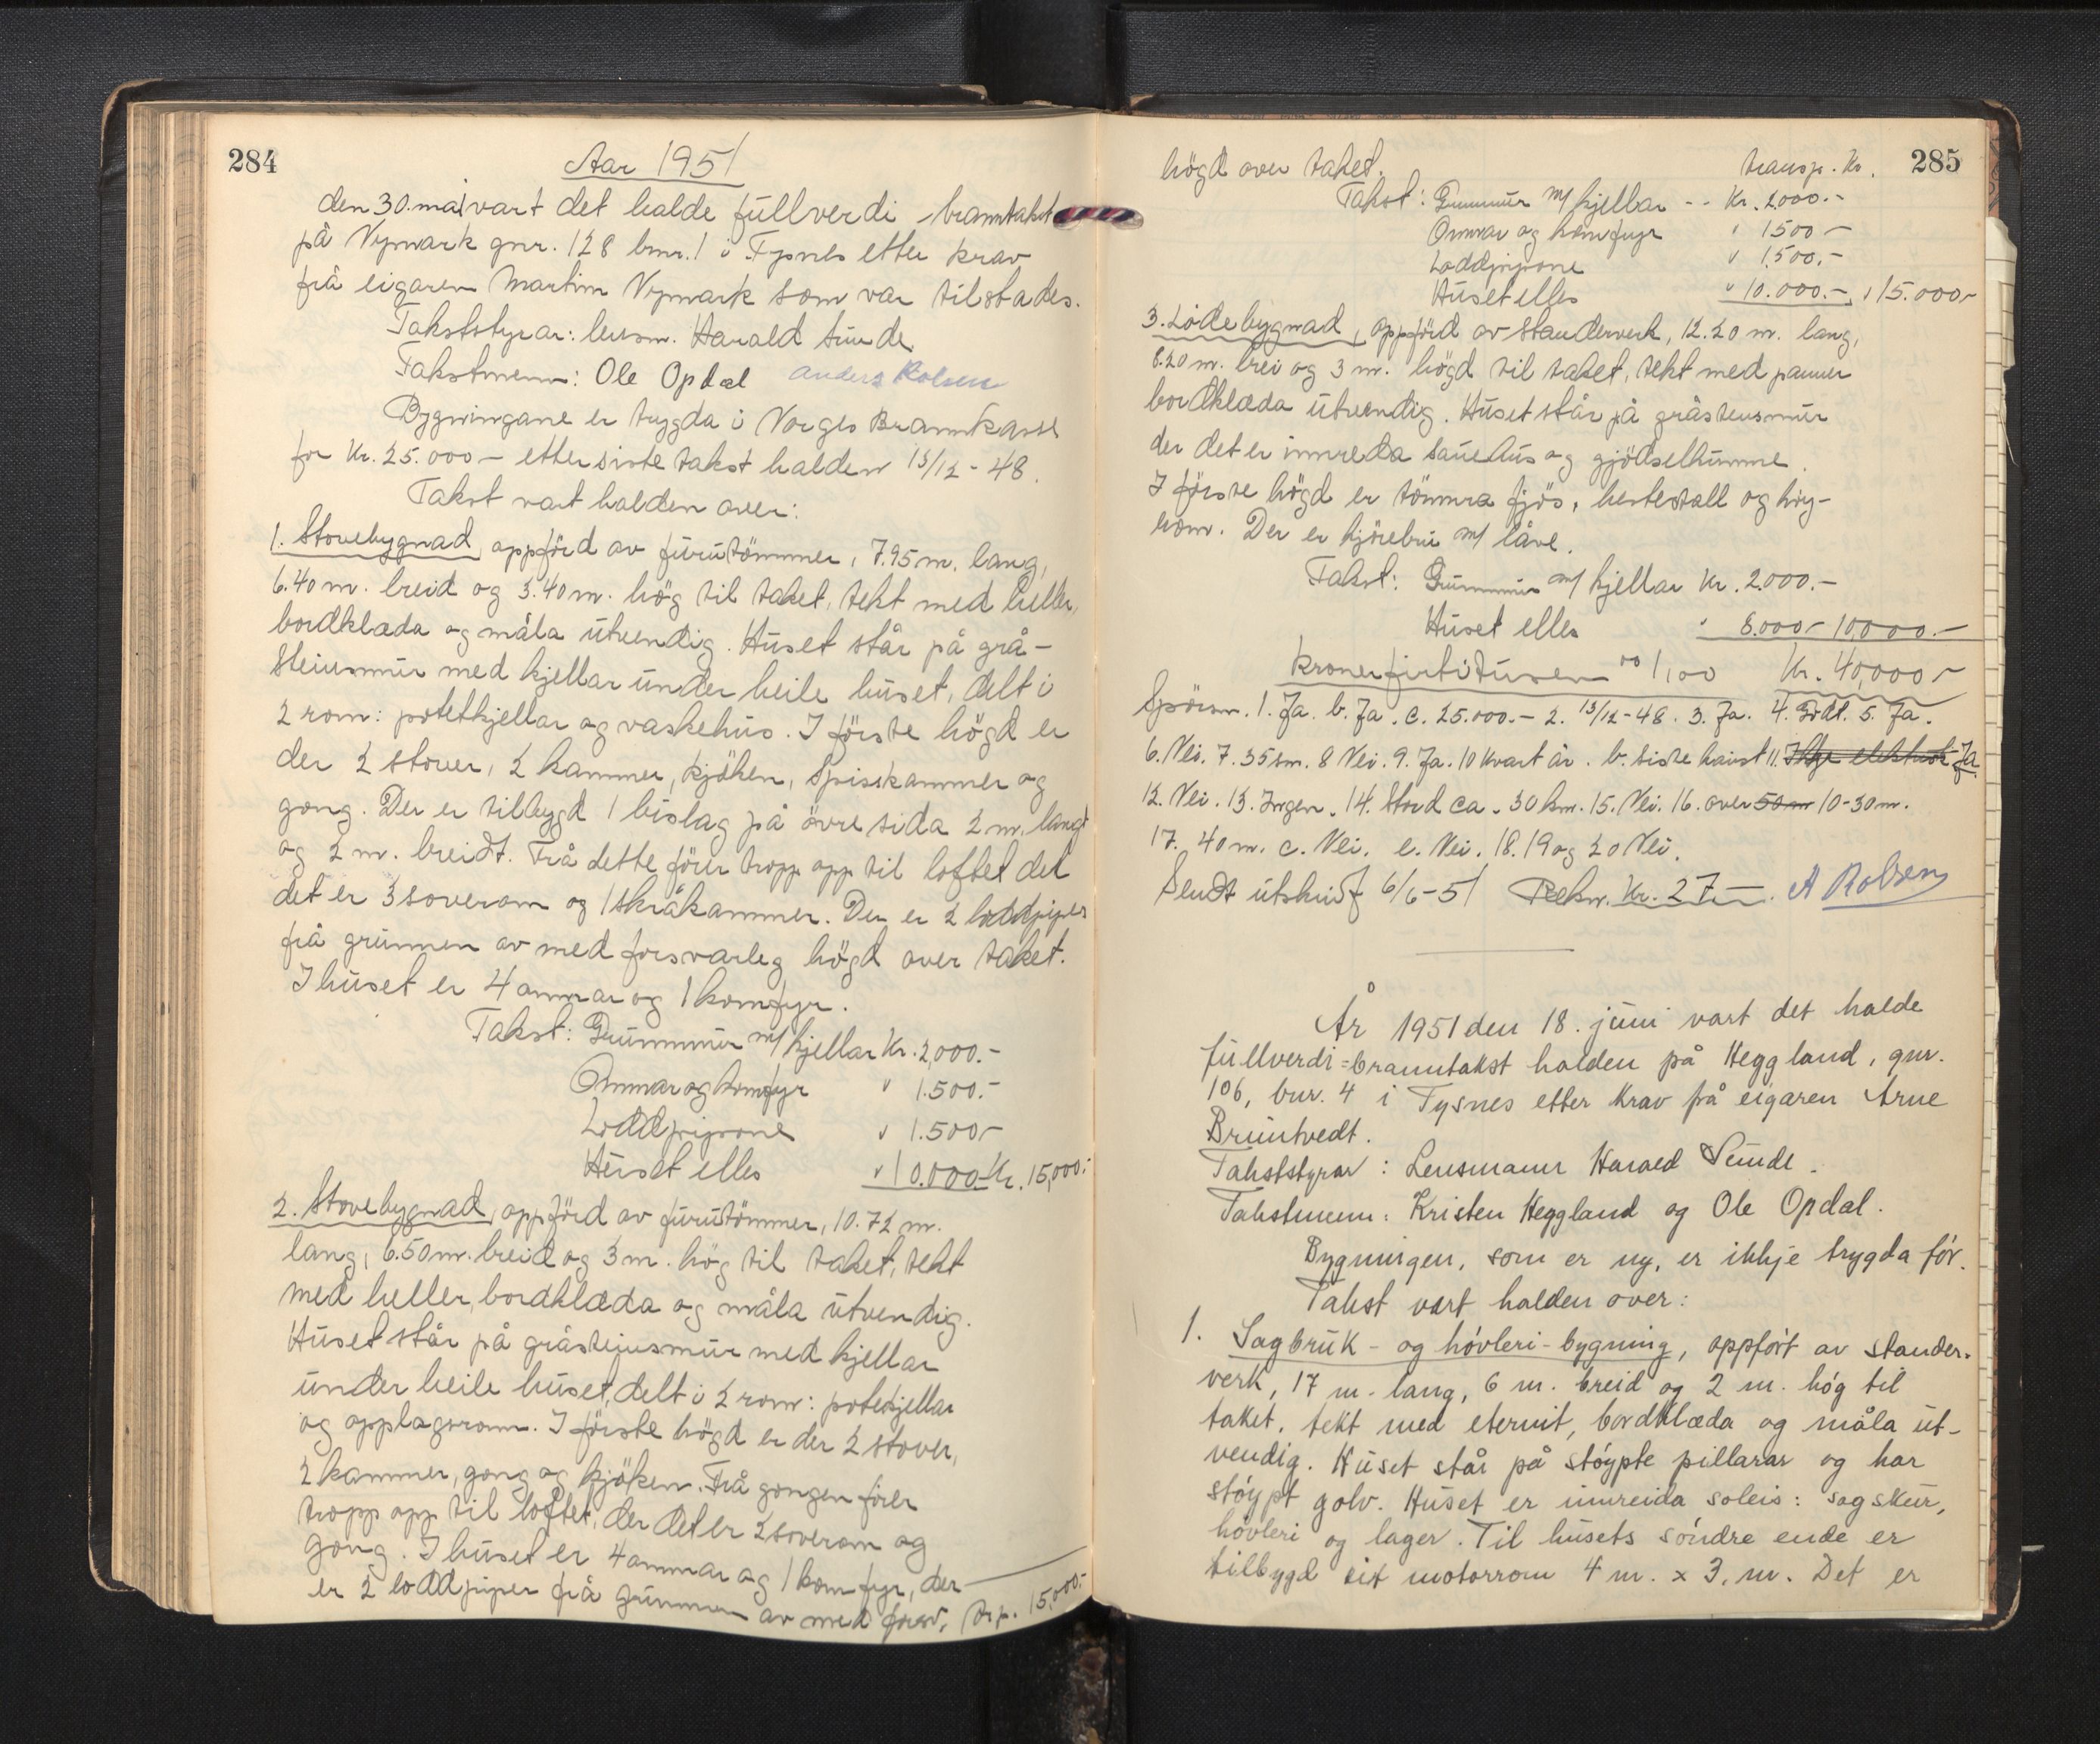 284
Aar 1951
den 30. mai vart det halde fullverdi-branntakst
på Nymark gnr. 128 bnr. 1 i Tysnes etter krav
frå eigaren Martin Nymark som var tilstades.
Takststyrar: lensm. Harald Sunde
Takstmenn: Ole Opdal Anders Rolsen
Bygningane er trygda i Norges Brannkasse
for Kr. 25.000 – etter siste takst halden 13/12 - 48.
Takst vart halden over:
1. Stovebygnad, oppförd av furutömmer, 7.95 m. lang,
6.40 m. breid og 3.40 m. hög til taket, tekt med heller,
bordklæda og måla utvendig. Huset står på grå-
steinsmur med kjellar under heile huset, delt i
2 rom: potetkjellar og vaskehus. I förste högd er
der 2 stover, 2 kammer, kjöken, spisskammer og
gong. Der er tilbygd 1 bislag på övre sida 2 m. langt
og 2 m. breidt. Frå dette förer tropp opp til loftet der
det er 3 soverom og 1 skråkammer. Der er 2 loddpiper
frå grunnen av med forsvarleg högd over taket.
I huset er 4 omnar og 1 komfyr.
Takst: Grunnmur m/ kjellar Kr. 2,000.-
Omnar og komfyr " 1.500.-
Loddpipone " 1.500 -
Huset elles " 10.000 Kr. 15,000.-
2. Stovebygnad, oppförd av furutömmer, 10.72 m.
lang, 6.50 m. breid og 3 m. hög til taket, tekt
med heller, bordklæda og måla utvendig.
Huset står på gråsteinsmur med kjellar
under heile huset, delt i 2 rom: potetkjellar
og opplagsrom. I förste högd er der 2 stover,
2 kammer, gong og kjöken. Frå gongen förer
tropp opp til loftet, der det er 2 soverom og
gong. I huset er 4 omnar og 1 komfyr, der
er 2 loddpiper frå grunnen av med forsv. Trp. 15,000.-
285
högd over taket. Transp. Kr.
Takst: Grunnmur m/ kjellar -- Kr. 2000.-
Omnar og komfyr " 1500 -
Loddpipone " 1.500.-
Huset elles " 10.000.- " 15.000 -
3. Lödebygnad, oppförd av standerverk, 12.20 m. lang,
8.20 m. brei og 3 m. högd til taket, tekt med panner
bordklæda utvendig. Huset står på gråsteinsmur
der det er innreda sauehus og gjödselkumme.
I förste högd er tömmra fjös, hestestall og höy-
rom. Der er kjörebru m/ låve.
Takst: Grunnmur m/ kjellar Kr. 2.000.-
Huset elles " 8.000 - 10,000.-
Kroner firti tusen 00/100 Kr. 40,000 -
Spörsm. 1. Ja. b. Ja. c. 25.000.- 2. 13/12 - 48. 3. Ja. 4. Godt. 5. Ja.
6. Nei. 7. 35 sm. 8 Nei. 9. Ja. 10 Kvart år. b. siste haust 11. Ikkje elektrisk Ja.
12. Nei. 13. Ingen. 14. Stord ca. 30 km. 15. Nei. 16. over 50 m 10-30 m.
17. 40 m. c. Nei. e. Nei. 18. 19 og 20 Nei.
Sendt utskrift 6/6 - 51 Rekn. Kr. 27 —. A Rolsen
År 1951 den 18. juni vart det halde
fullverdi=branntakst halden på Heggland, gnr.
106, bnr. 4 i Tysnes etter krav frå eigaren Arne
Bruntvedt.
Takststyrar: Lensmann Harald Sunde.
Takstmenn: Kristen Heggland og Ole Opdal.
Bygningen, som er ny, er ikkje trygda för.
Takst vart halden over:
1. Sagbruk - og hövleri - bygning, oppfört av stander-
verk, 17 m. lang, 6 m. breid og 2 m. hög til
taket, tekt med eternit, bordklæda og måla ut-
vendig. Huset står på stöypte pillarar og har
stöypt golv. Huset er innreida soleis: sagskur,
hövleri og lager. Til husets söndre ende er
tilbygd eit motorrom 4 m. x 3. m. Det er